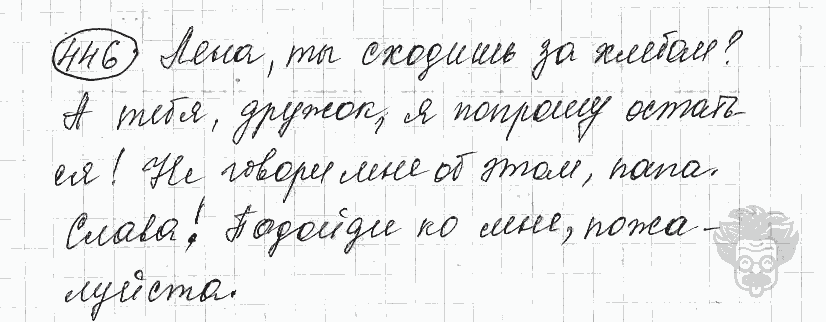 446. Лена, ты сходишь за хлебом?
А тебя, дружок, я попрошу остать-
ся! Не говори мне об этом, папа.
Слава! Подойди ко мне, пожа-
луйста.